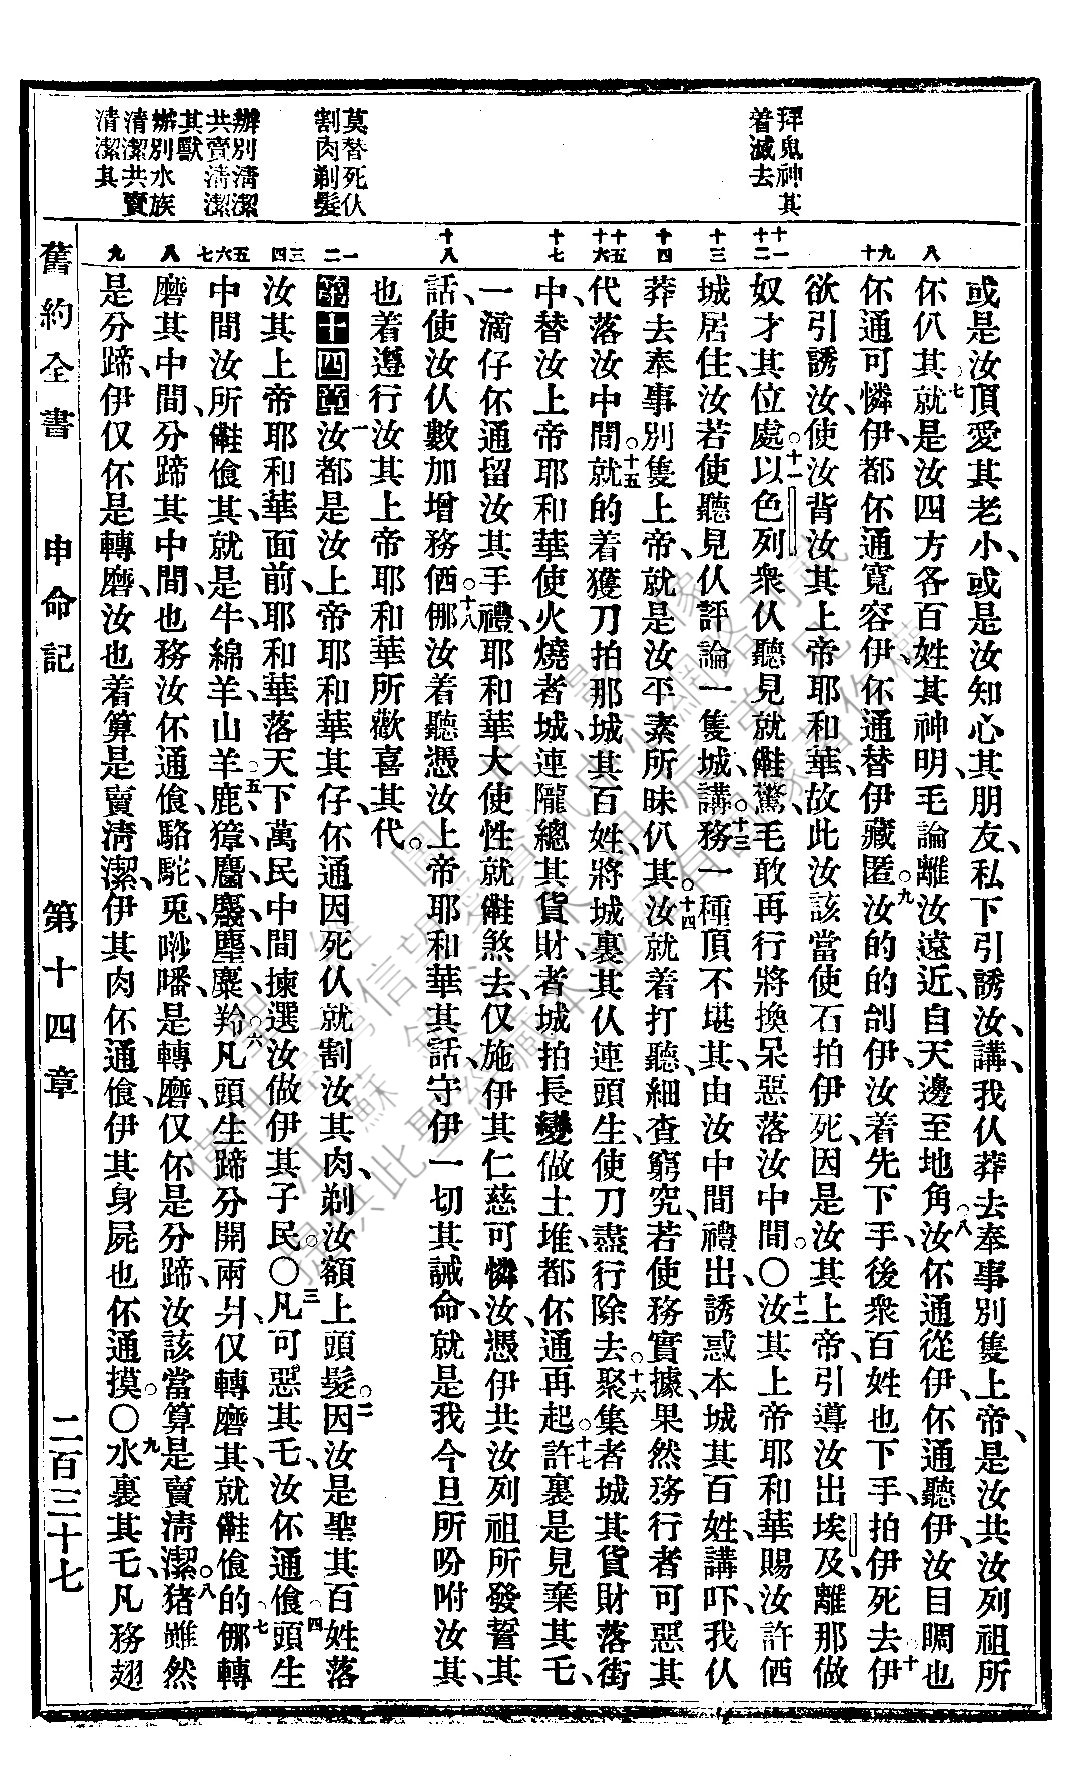 拜鬼神其
着滅去
莫替死仈
割肉剃髮
辦別清潔
共賣清潔
其獸
辦別水族
清潔共賣
清潔其
八
九
十
十一
十二
十三
十四
十五
十六
十七
十八
一
二
三
四
五
六
七
八
九
或是汝頂愛其老小、或是汝知心其朋友、私下引誘汝、講、我仈莽去奉事別隻上帝、是汝共汝列祖所
伓仈其、七就是汝四方各百姓其神明、毛論離汝遠近、自天邊至地角、八汝伓通從伊、伓通聽伊、汝目瞯也
伓通可憐伊、都伓通寬容伊、伓通替伊藏匿、九汝的的刣伊、汝着先下手、後衆百姓也下手、十拍伊死去、伊
欲引誘汝、使汝背汝其上帝耶和華、故此汝該當使石拍伊死、因是汝其上帝、引導汝出埃及、離那做
奴才其位處。十一以色列衆仈聽見就䧹驚、毛敢再行將換呆惡落汝中間。〇十二汝其上帝耶和華賜汝許佰
城居住、汝若使聽見仈評論一隻城、講、十三務一種頂不堪其、由汝中間禮出、誘惑本城其百姓、講吓、我仈
莽去奉事別隻上帝、就是汝平素所昧仈其。十四汝就着打聽、細查窮究、若使務實據、果然務行者可惡其
代落汝中間。十五就的着獲刀拍那城其百姓、將城裏其仈連頭生、使刀盡行除去。十六聚集者城其貨財落街
中、替汝上帝耶和華使火燒者城、連隴總其貨財、者城拍長變做土堆、都伓通再起。十七許裏是見棄其乇、
一滴仔伓通留汝其手禮、耶和華大使性就䧹煞去、仅施伊其仁慈可憐汝、憑伊共汝列祖所發誓其
話、使汝仈數加增務佰。十八䧹汝着聽憑汝上帝耶和華其話、守伊一切其誡命、就是我今旦所吩咐汝其、
也着遵行汝其上帝耶和華所歡喜其代。
第十四章 一汝都是汝上帝耶和華其仔、伓通因死仈就割汝其肉、剃汝額上頭髮。二因汝是聖其百姓落
汝其上帝耶和華面前、耶和華落天下萬民中間揀選汝做伊其子民。〇三凡可惡其乇、汝伓通飧。四頭生
中間汝所䧹飧其、就是牛、綿羊、山羊、五鹿、獐、麕、麢、麈、麋、羚。六凡頭生蹄分開兩爿、仅轉磨其、就䧹飧的。七䧹轉
磨其中間、分蹄其中間、也務汝伓通飧、駱駝、兎、𠵼噃、是轉磨、仅伓是分蹄、汝該當算是賣清潔。八猪雖然
是分蹄、伊仅伓是轉磨、汝也着算是賣清潔、伊其肉伓通飧、伊其身屍也伓通摸。〇九水裏其乇、凡務翅
舊約全書
申命記
第十四章
二百三十七